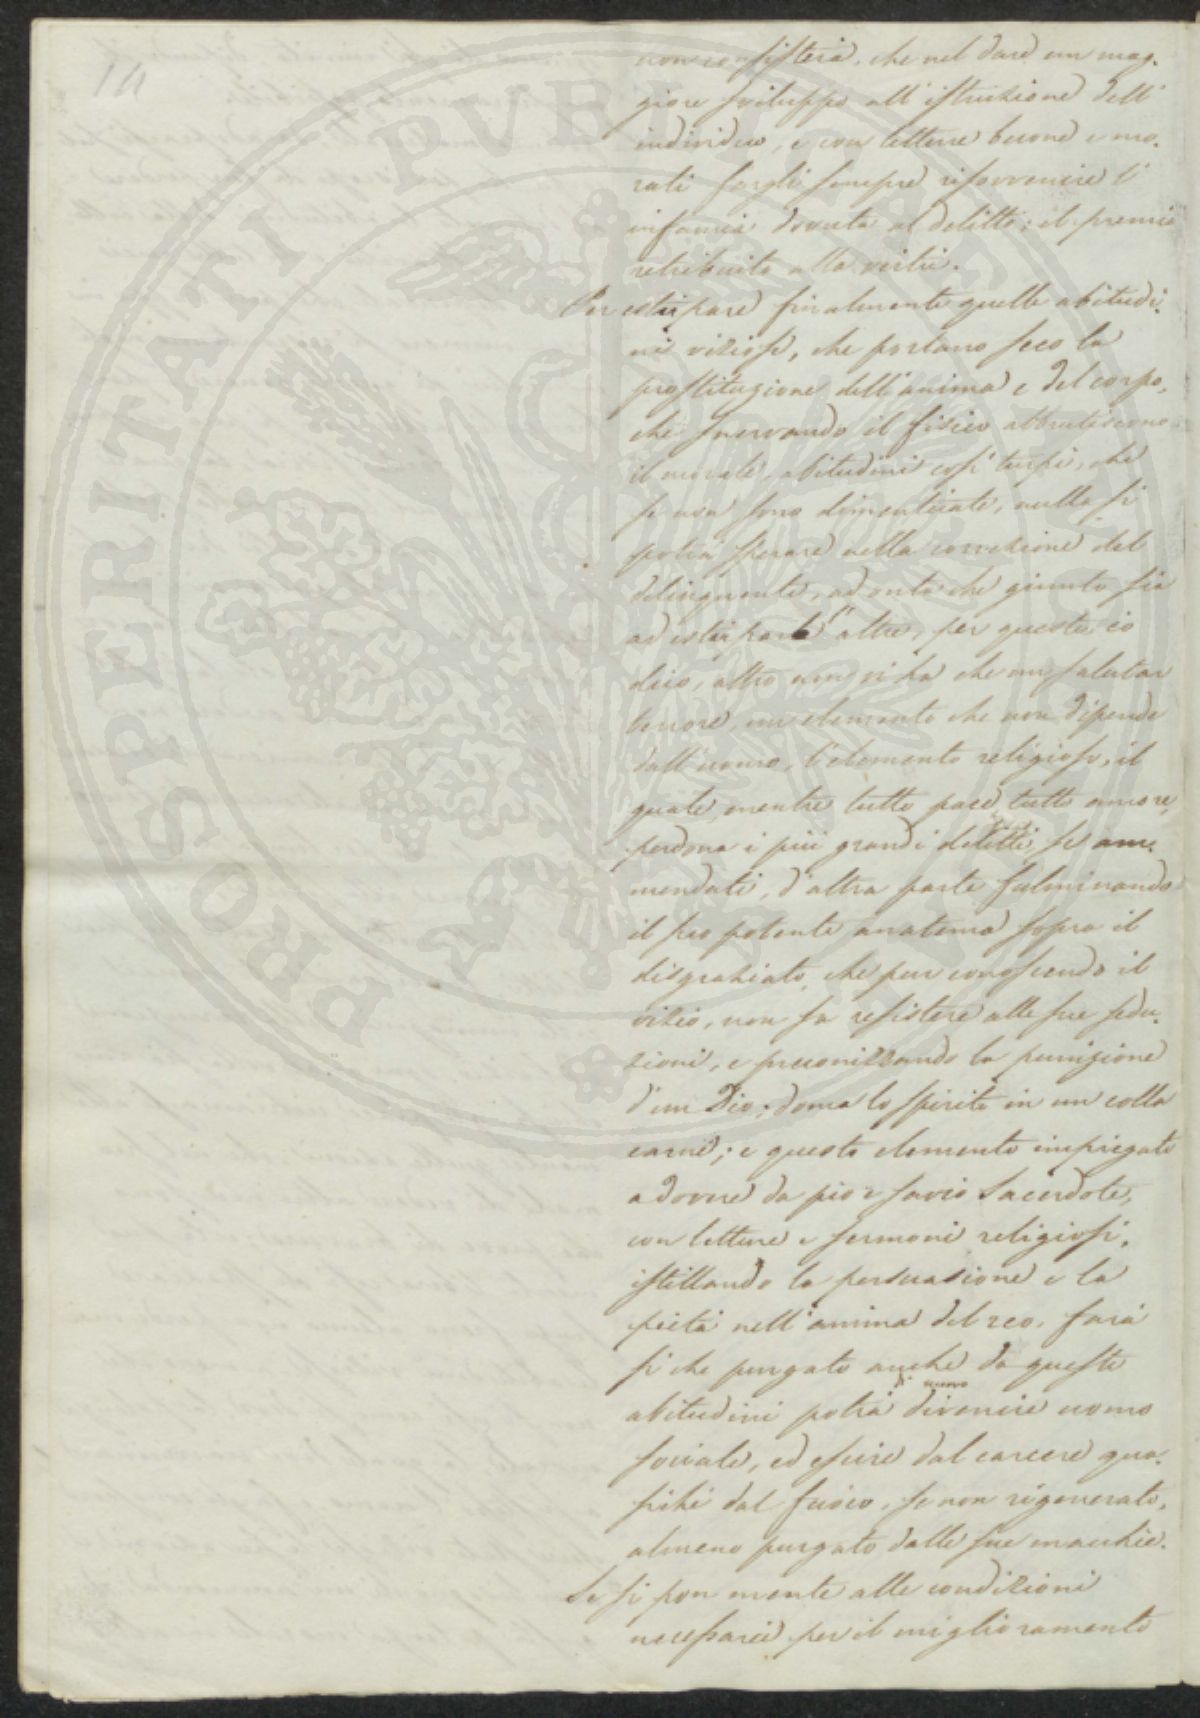 14
non consisterà, che nel dare un mag-
giore sviluppo all' istruzione dell'
individuo, e con letture buone e mo-
rali fargli sempre risovvenire l'
infamia dovuta al delitto; il premio
retribuito alla virtù.
Per estirpare finalmente quelle abitudi-
ni viziose, che portano seco la
prostituzione dell'anima e del corpo,
che snervando il fisico abbrutiscono
il morale, abitudini così turpi, che
se non sono dimenticate, nulla si
potrà sperare nella correzione del
delinquente, ad onta che giunto sia
ad estirpar l' altre, per queste io
dico, altro non vi ha che un salutar
terrore, un elemento che non dipende
dall'uomo, l'elemento religioso, il
quale, mentre tutto pace, tutto amore,
perdona i più grandi delitti, se am-
mendati, d'altra parte fulminando
il suo potente anatema sopra il
disgraziato, che pur conoscendo il
vizio, non sa resistere alle sue sedu-
zioni, e preconizzando la punizione
d'un Dio; doma lo spirito in un colla
carne; e questo elemento impiegato
a dovere da pio e savio Sacerdote,
con letture e sermoni religiosi,
istillando la persuasione e la
pietà nell'anima del reo, farà
sì che purgato anche da queste
abitudini potrà di nuovo divenire uomo
sociale, ed escire dal carcere qua-
si dal fuoco, se non rigenerato,
almeno purgato dalle sue macchie.
Se si pon mente alle condizioni
necessarie per il miglioramento
PROSPERITATI PVBLICAE